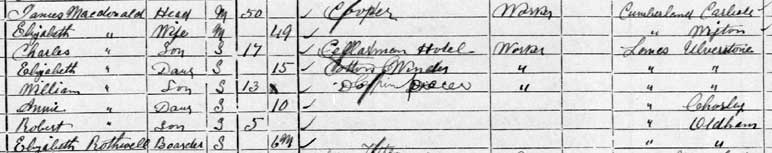 James Macdonald Head M 50 Cooper Worker Cumberland Carlisle
Elizabeth " Wife M 49 " Wigton
Charles " Son S 17 Cellarman Hotel Worker Lancs Ulverstone
Elizabeth " Daur S 15 Cotton Winder " " "
William " Son S 13 " " "
Annie " Daur S 10 " Chorley
Robert " Son S 5 " Oldham
Elizabeth Rothwell Boarder S " "